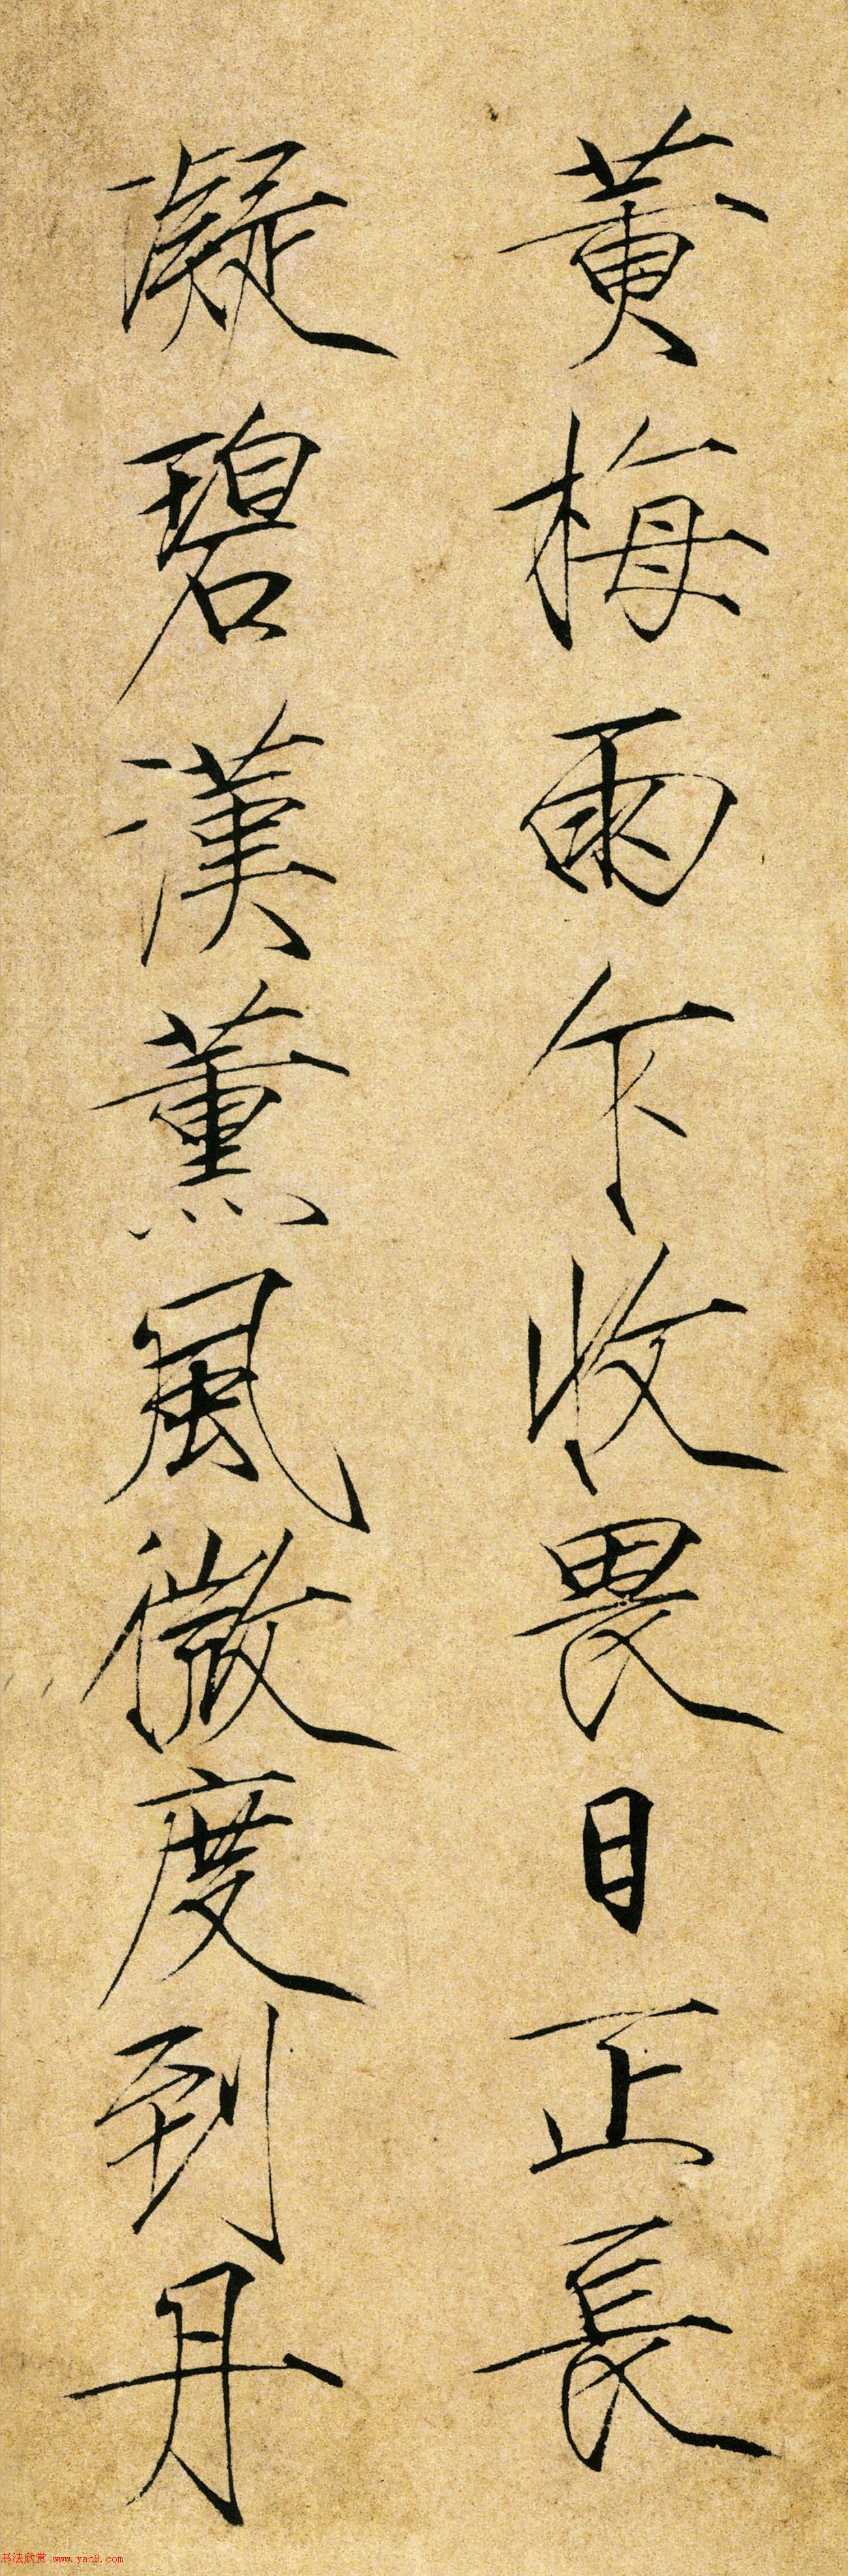 黄梅雨乍收畏日正長
凝碧漢薰風微度到丹
书法欣赏 www.yac8.com